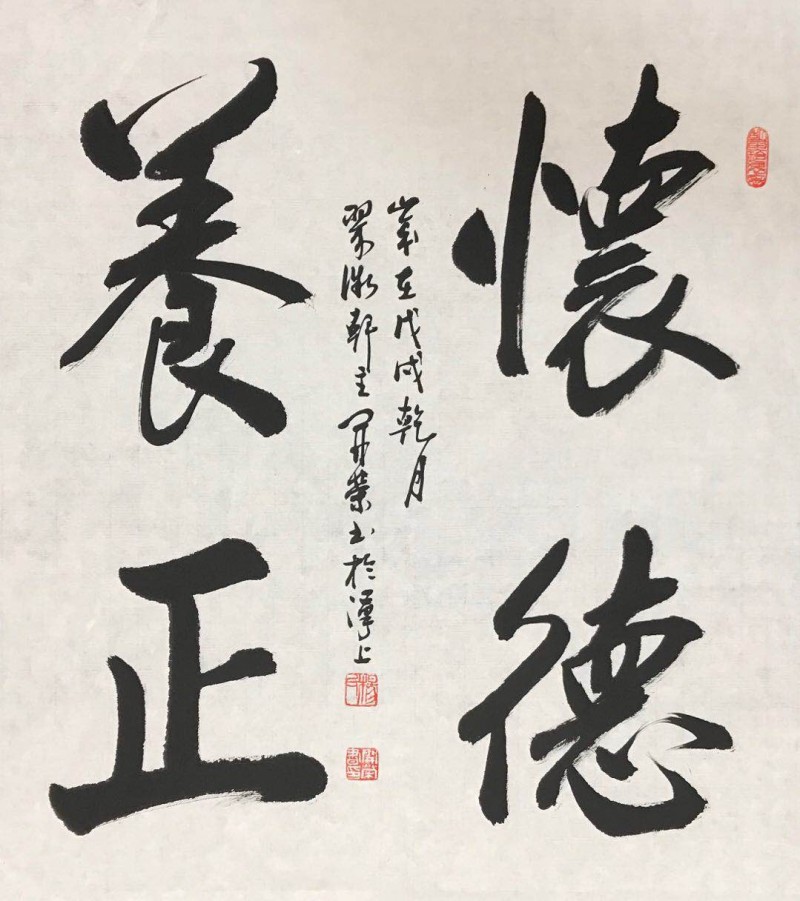 懷德
養正
歲在戊戌乾月
翠微軒主開榮書於潭上